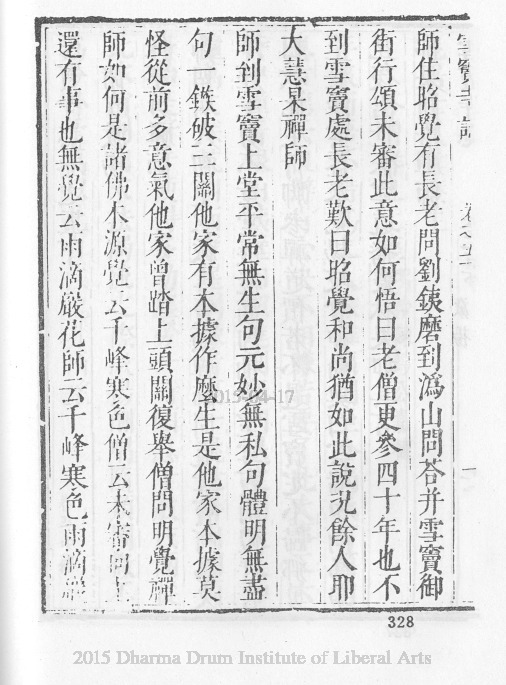 雪竇寺誌 卷之五
師住昭覺有長老問劉鉄磨到溈山問荅并雪竇御
街行頌未審此意如何悟曰老僧更參四十年也不
到雪竇處長老歎曰昭覺和尚猶如此說况餘人耶
大慧杲禪師
師到雪竇上堂平常無生句元妙無私句體明無盡
句一鏃破三關他家有本據作麽生是他家本據莫
怪從前多意氣他家曾踏上頭關復舉僧問明覺禪
師如何是諸佛本源覺云千峰寒色僧云未審向上
還有事也無覺云雨滴巖花師云千峰寒色雨滴巖
328
2015-04-17
2015 Dharma Drum Institute of Liberal Arts